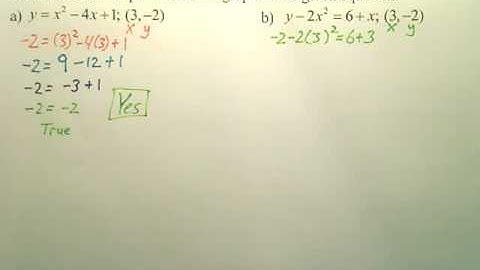 a) y = x² − 4x + 1; (3, −2)
x y
-2 = (3)² - 4(3) + 1
-2 = 9 - 12 + 1
-2 = -3 + 1
-2 = -2
Yes
True
b) y − 2x² = 6 + x; (3, −2)
x y
-2 - 2(3)² = 6 + 3